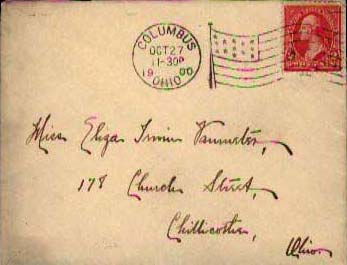 COLUMBUS
OCT 27
11-30P
1900
OHIO
Miss Eliza Irwin Vanmeter,
178 Church Street,
Chillicothe,
Ohio.